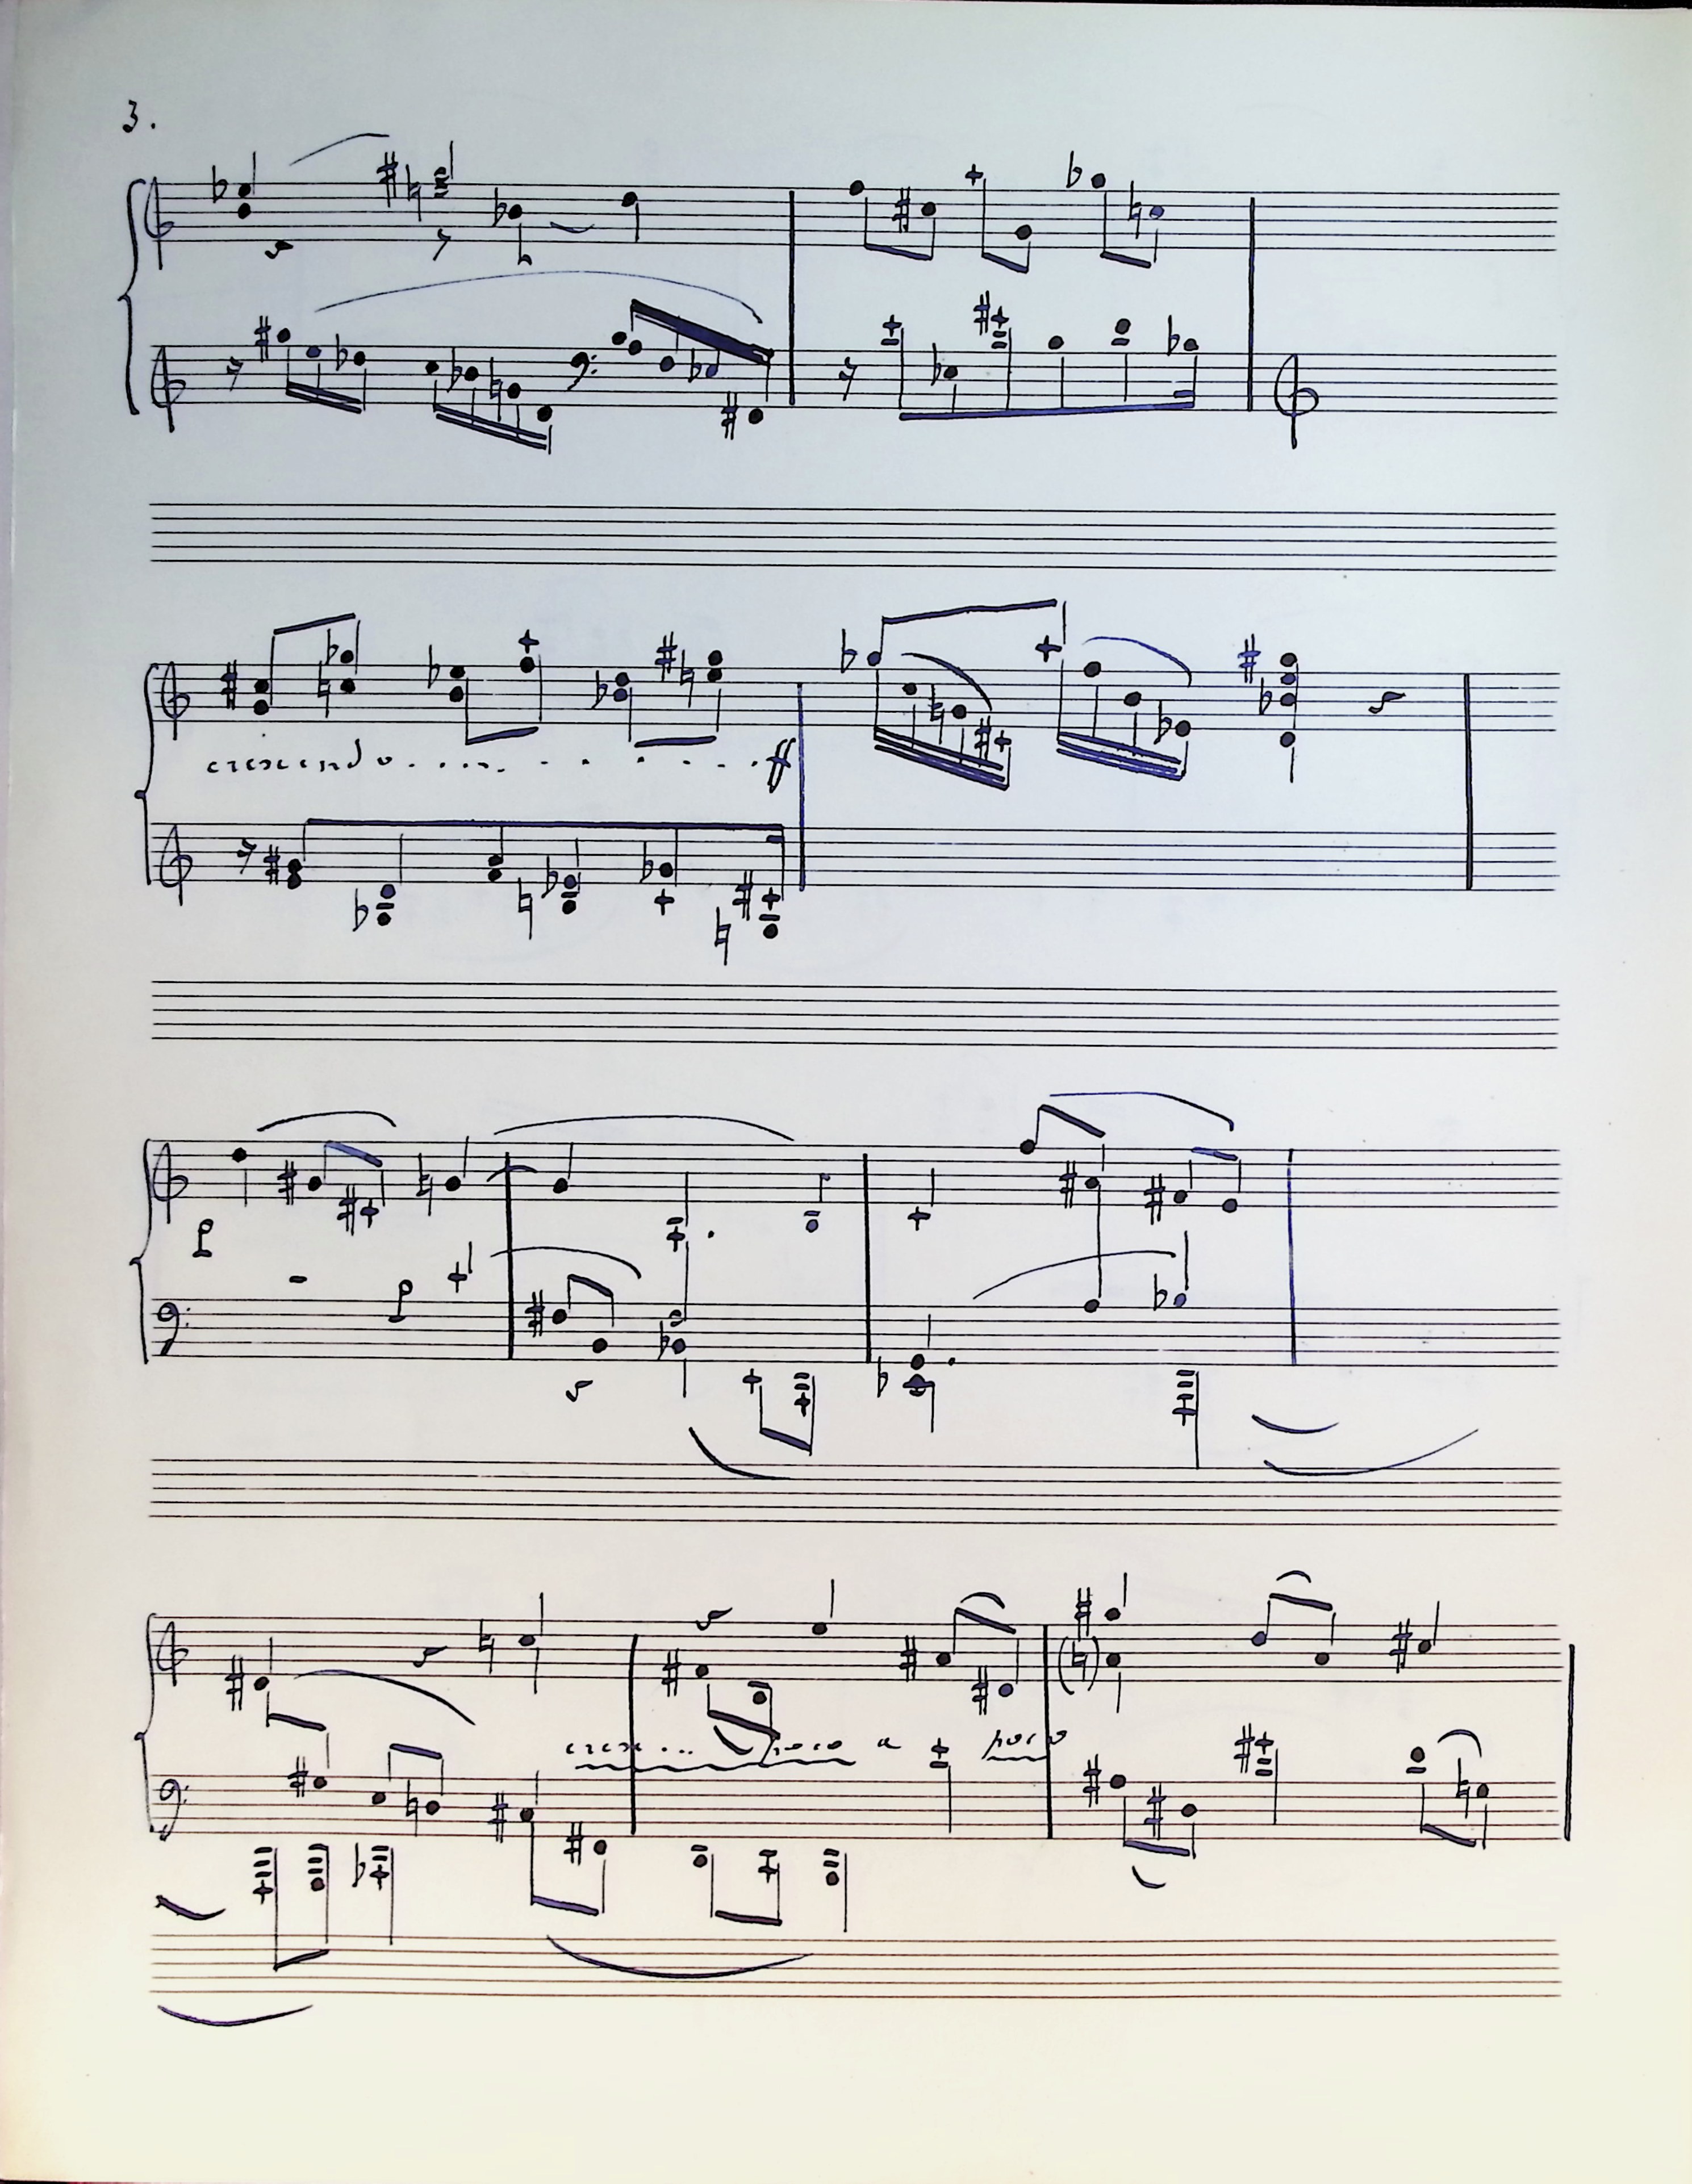 3.
crescendo........... ff
p
p
cresc... poco a poco